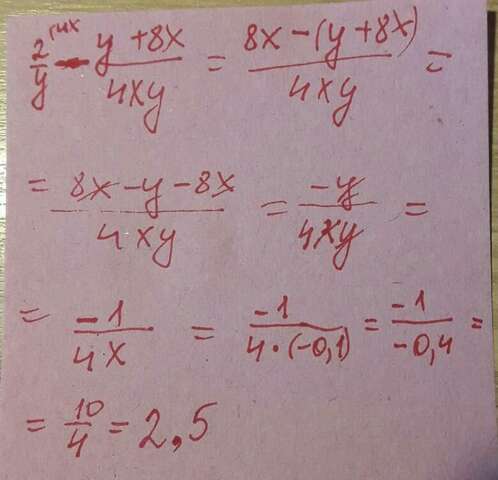 2/y ^(4x − (y + 8x)/(4xy) = (8x − (y + 8x))/(4xy) =
= (8x − y − 8x)/(4xy) = (−y)/(4xy) =
= (−1)/(4x) = (−1)/(4·(−0,1)) = (−1)/(−0,4) =
= 10/4 = 2,5